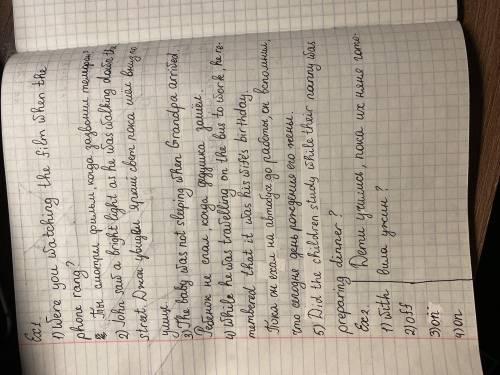 Ex1.
1) Were you watching the film when the
phone rang?
Ты смотрел фильм, когда зазвонил телефон?
2) John saw a bright light as he was walking down the
street. Джон увидел яркий свет пока шёл вниз по
улице.
3) The baby was not sleeping when Grandpa arrived.
Ребенок не спал когда дедушка зашёл.
4) While he was travelling on the bus to work, he re-
membered that it was his wife's birthday.
Пока он ехал на автобусе до работы, он вспомнил,
что сегодня день рождения его жены.
5) Did the children study while their nanny was
preparing dinner?
Дети учились, пока их няня гото-
вила ужин?
Ex2.
1) with
2) off
3) on
4) on